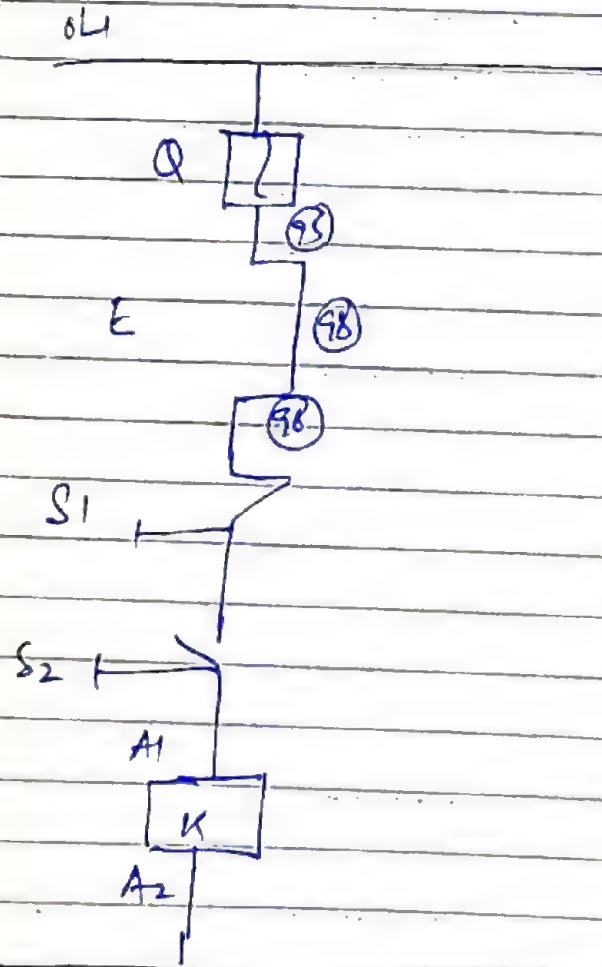 OL1
Q
95
E
98
98
S1
S2
A1
K
A2